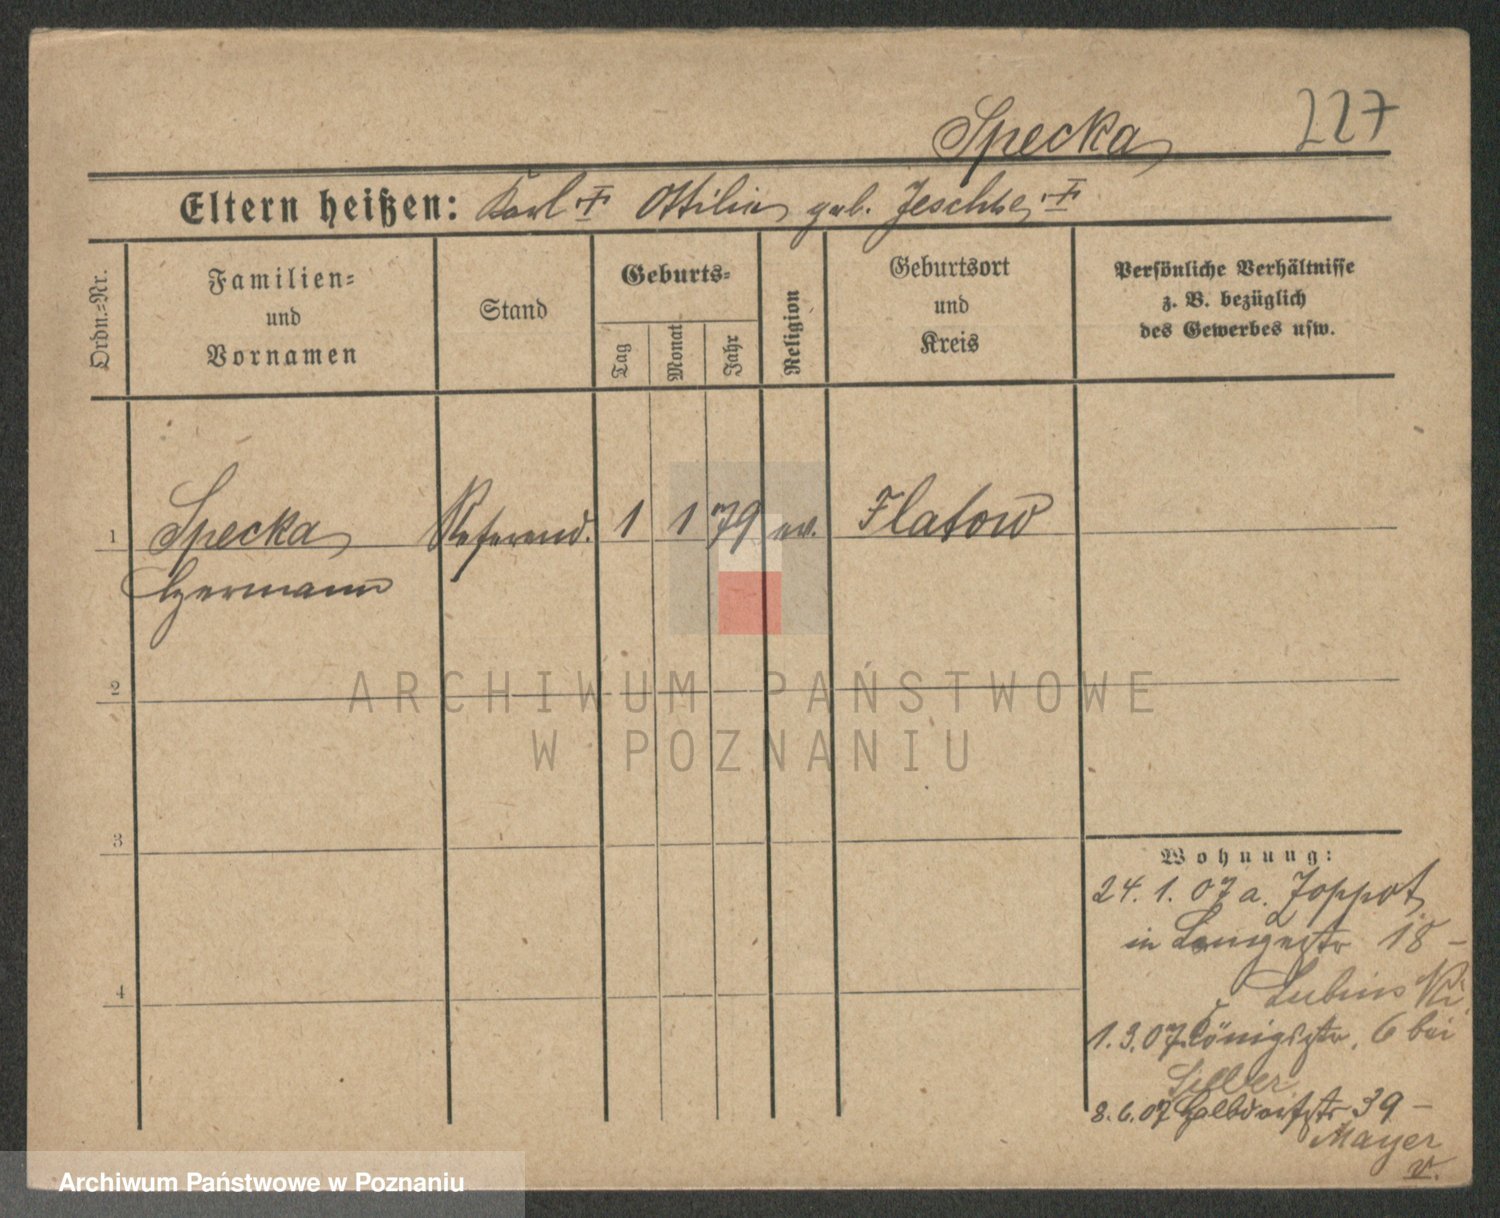 Specka 227
Eltern heißen: Karl † Ottilie geb. Jeschke †
Ordn.=Nr.
Familien=
und
Vornamen
Stand
Geburts=
Tag
Monat
Jahr
Religion
Geburtsort
und
Kreis
Persönliche Verhältnisse
z. B. bezüglich
des Gewerbes usw.
1 Specka Referend. 1 1 79 ev. Flatow
Hermann
2
ARCHIWUM PAŃSTWOWE
W POZNANIU
3
4
Wohnung:
24. 1. 07 a. Zoppot
in Langestr 18 -
1. 3. 07 Königstr. 6 bei
8. 6. 07 39 -
Mayer
v.
Archiwum Państwowe w Poznaniu